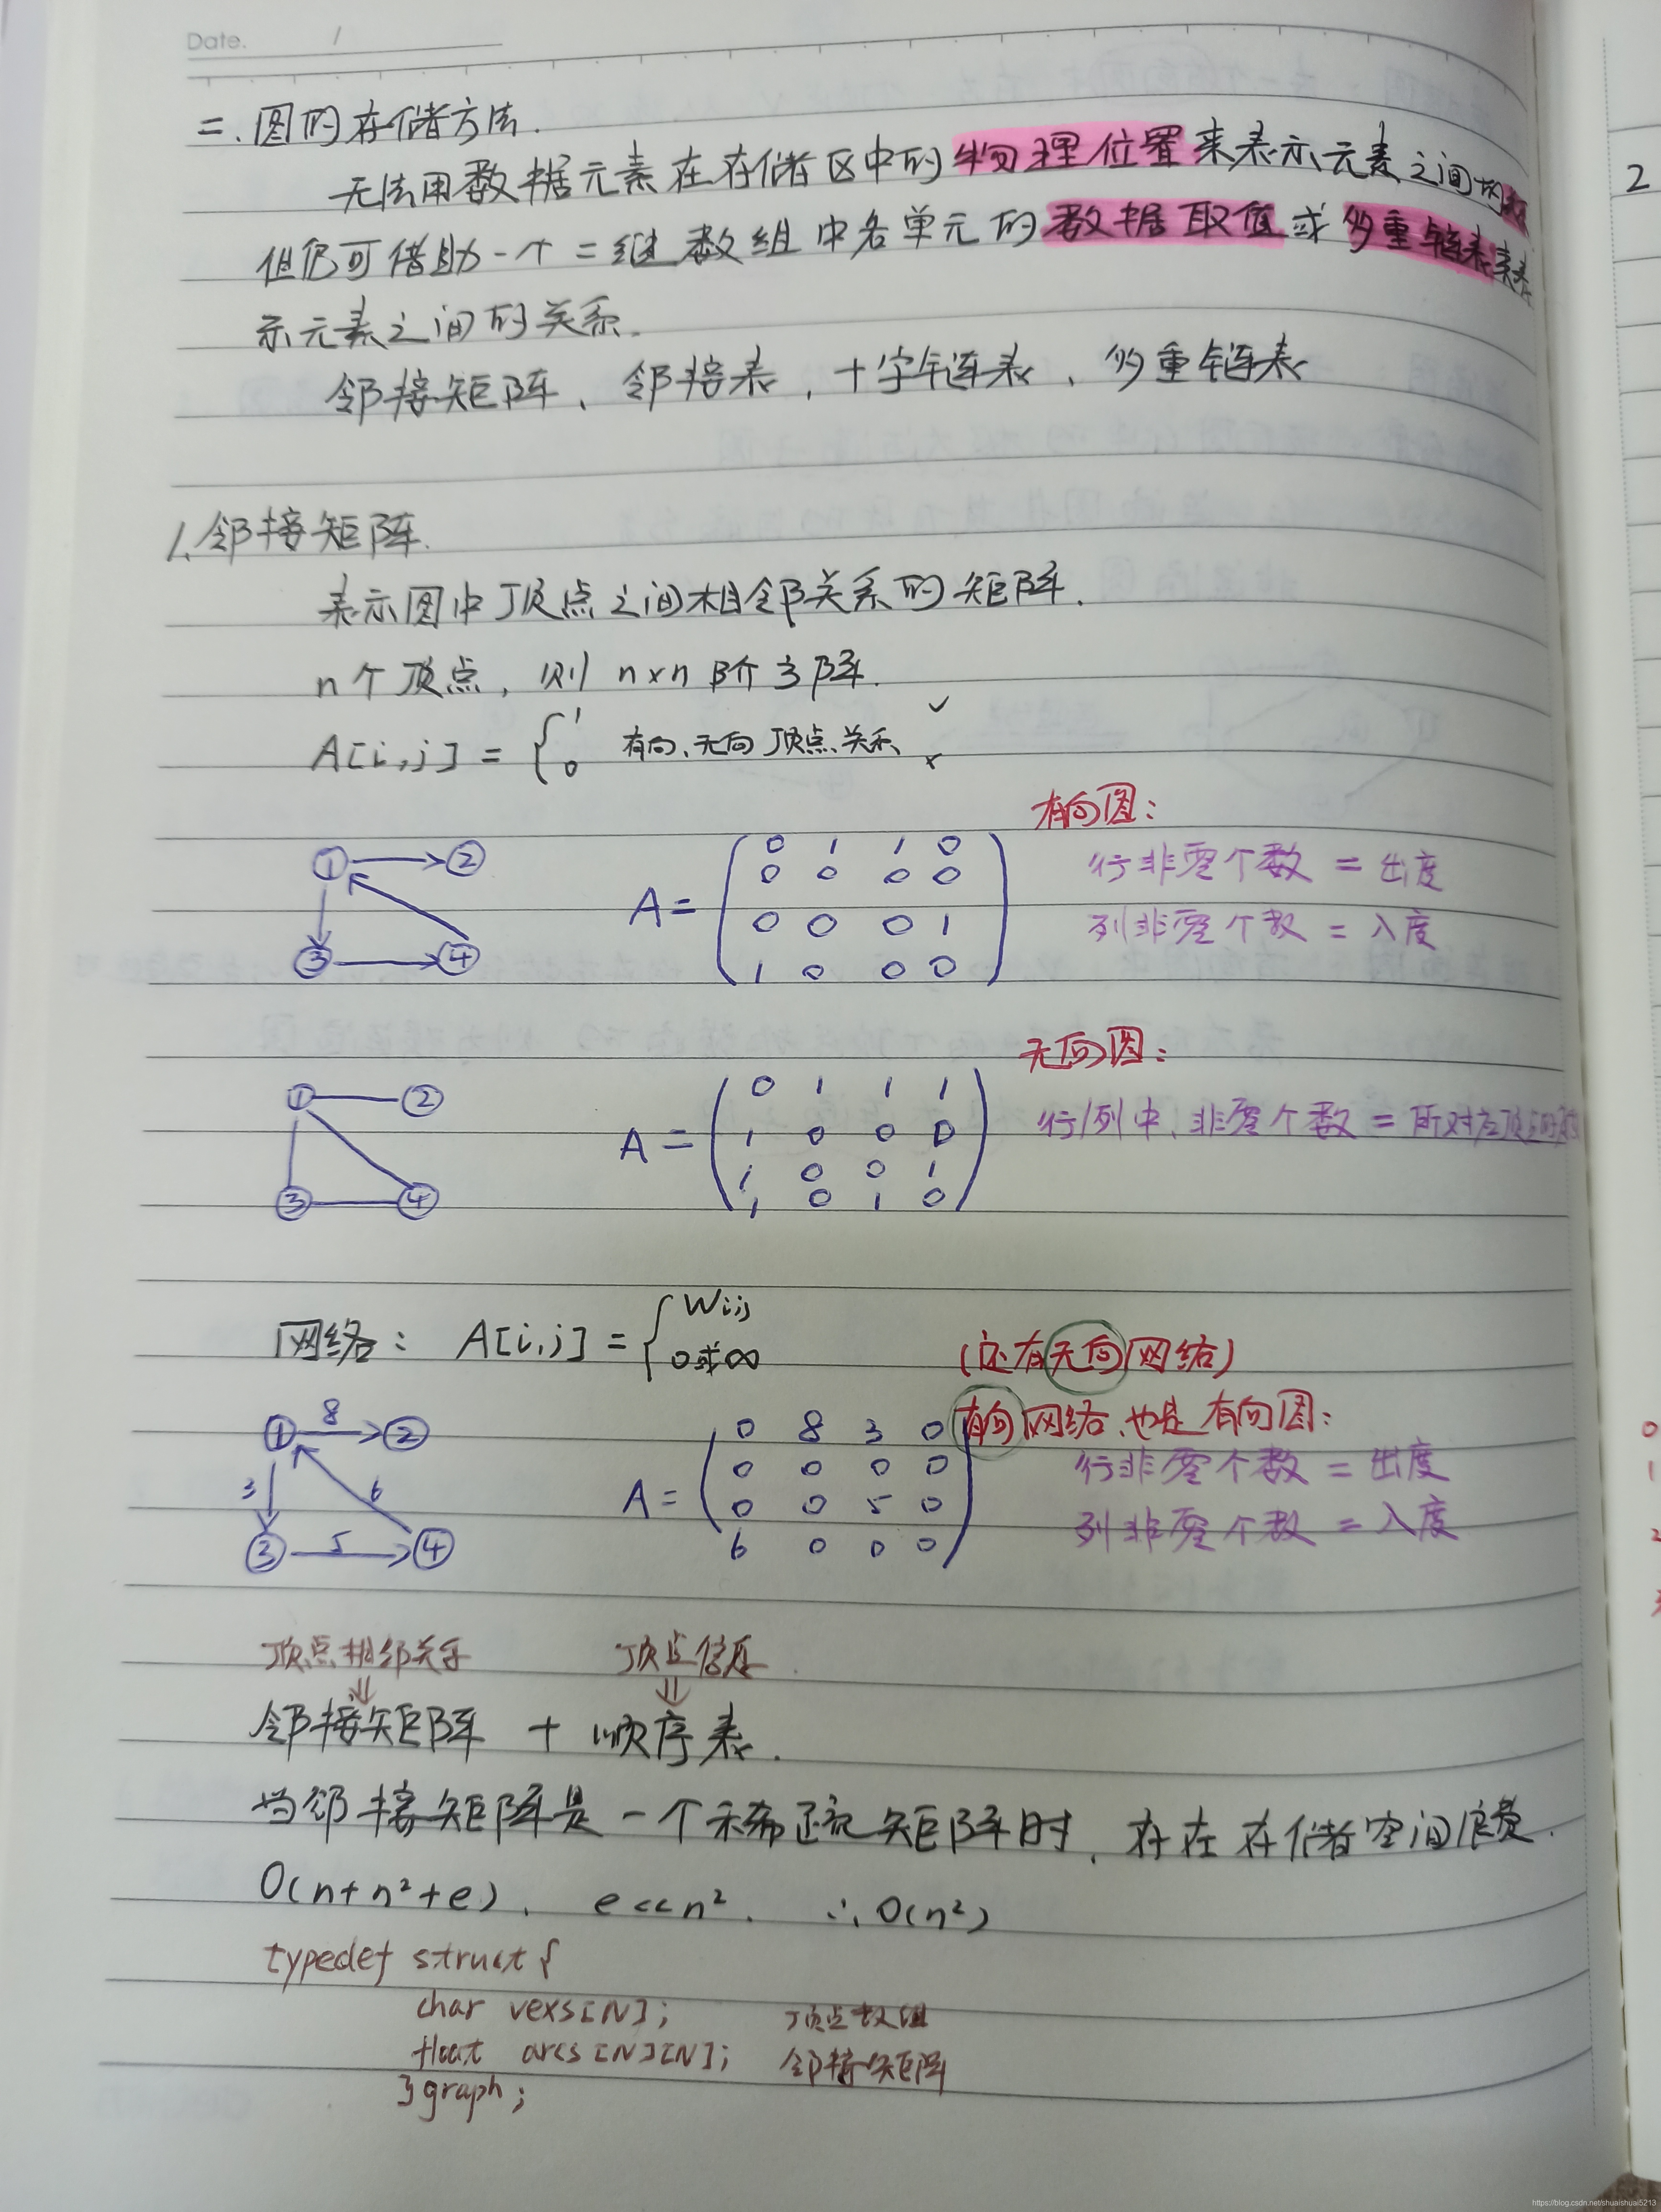 Date. /
二.图的存储方法.
无法用数据元素在存储区中的物理位置来表示元素之间的
但仍可借助一个二维数组中各单元的数据取值或多重链表来表
示元素之间的关系.
邻接矩阵、邻接表,十字链表、多重链表
1.邻接矩阵.
表示图中顶点之间相邻关系的矩阵.
n个顶点,则n×n阶方阵.
A[i,j] = { 1 有向、无向顶点关系 ✓
0 ×
有向图:
① ② ③ ④
A = ( 0 1 1 0
0 0 0 0
0 0 0 1
1 0 0 0 )
行非零个数 = 出度
列非零个数 = 入度
无向图:
① ② ③ ④
A = ( 0 1 1 1
1 0 0 0
1 0 0 1
1 0 1 0 )
行/列中,非零个数 = 所对应顶点的度
网络: A[i,j] = { Wij
0或∞
(还有无向网络)
有向网络,也是有向图:
① 8 ②
3 6
③ 5 ④
A = ( 0 8 3 0
0 0 0 0
0 0 5 0
6 0 0 0 )
行非零个数 = 出度
列非零个数 = 入度
顶点相邻关系 顶点信息
邻接矩阵 + 顺序表.
当邻接矩阵是一个稀疏矩阵时,存在存储空间浪费.
O(n+n²+e), e<<n². ∴O(n²)
typedef struct{
char vexs[N]; 顶点数组
float arcs[N][N]; 邻接矩阵
}graph;
2
0
1
2
https://blog.csdn.net/shuaishuai5213